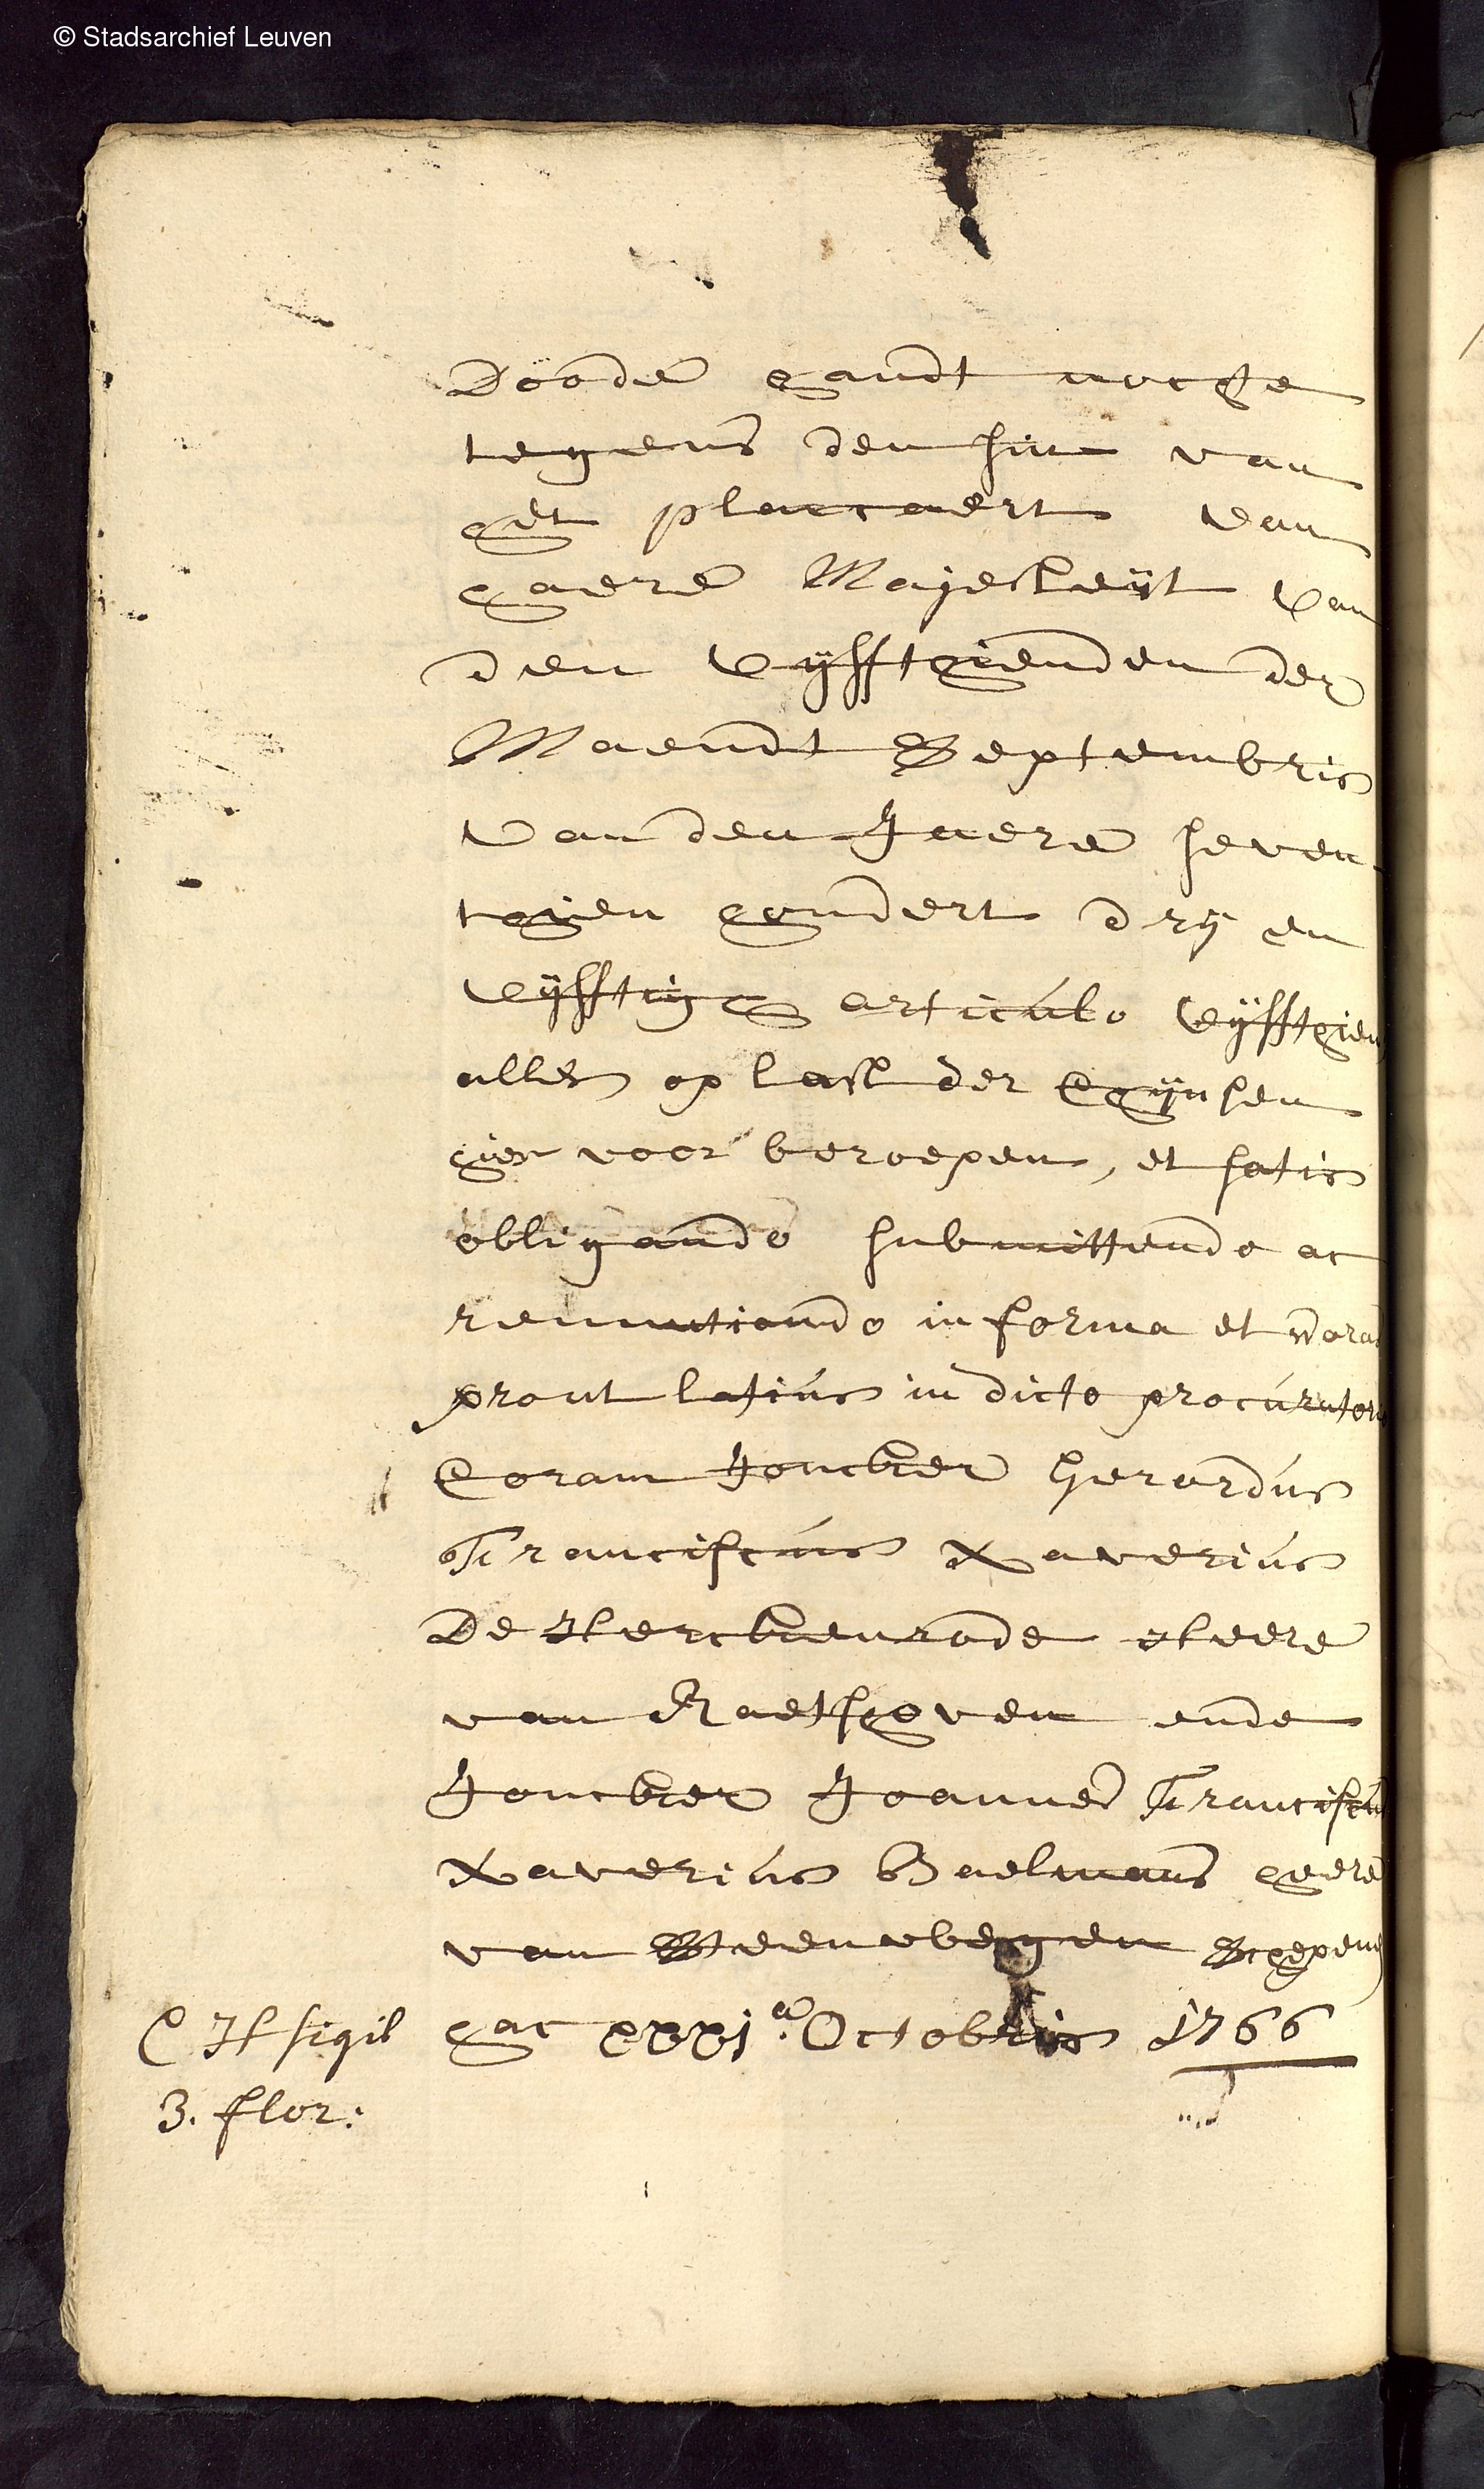 © Stadsarchief Leuven
Doode handt nochte
tegens den sin van
het placcaert van
haere Majesteÿt van
den vÿffthienden der
Maendt Septembris
van den Jaere seven
thien hondert drÿ en
vÿfftigh articúlo vÿffthien
alles op last der Chÿnsen
hier voor beroepen, et satis
obligando submittendo ac
renuntiando in forma et
prout latiús in dicto procúratorio
Coram Joncker Gerardús
Franciscús Xaveriús
De Herckenrode Heere
van Raethoven ende
Joncker Joannes Franciscús
Xaveriús Baelmans heere
van Steenbergen Schepene
hac xxxj.a Octobris 1766
H sigil
3. flor: